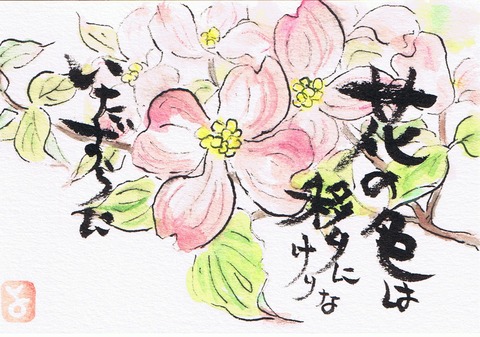 花の色は
移りに
けりな
いたずらに